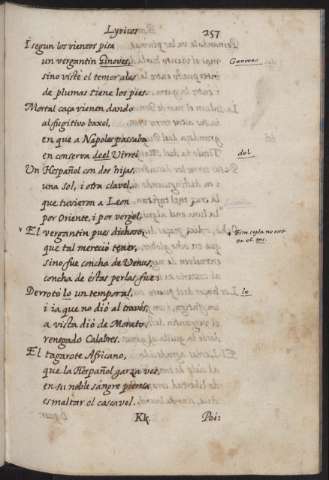 Lyricos 257
I segun los vientos pisa
un vergantin Ginoves,
sino viste el temor alas
de plumas tiene los pies.
Mortal caça vienen dando
al fugitivo baxel,
en que a Napoles passaba
en conserva deel Virrei
Un Hespañol con dos hijas,
una Sol, i otra clavel,
que tuvieron a Leon
por Oriente, i por vergel.
El vergantin pues dichoso,
que tal mereciò tener,
sino fue concha de Venus,
concha de èstas perlas fue:
Derrotò lo un temporal,
i ia que no diò al travès,
a vista diò de Morato,
renegado Calabres.
El tagarote Africano,
que la Hespañol garza ve,
en su noble sangre piensa
esmaltar el cascavel.
Kk Poi:
Genoves.
del.
lo